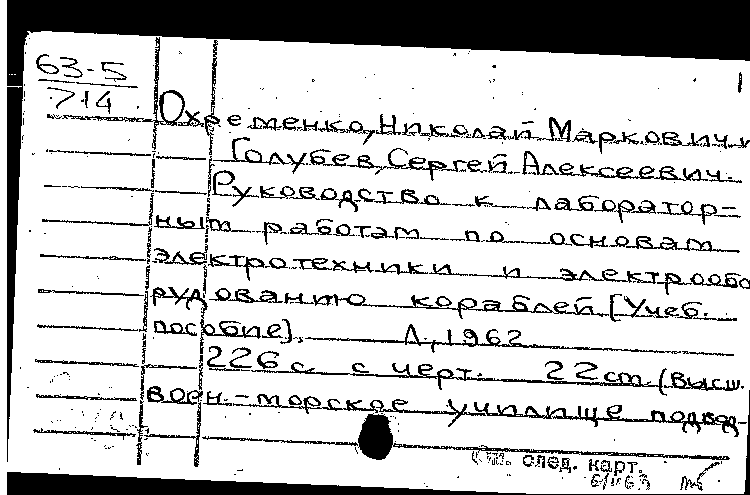 63-5
714
Охременко, Николай Маркович и
Голубев, Сергей Алексеевич.
Руководство к лаборатор-
ным работам по основам
электротехники и электрообо
рудованию кораблей [Учеб.
пособие]. Л., 1962
226 с. с черт. 22 см (Высш.
воен.-морское училище подвод-
См. след. карт.